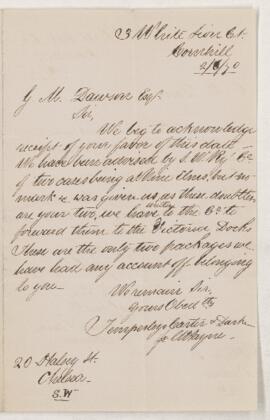 3 White Lion Ct.
Cornhill
G M. Dawson Esqr.
Sir,
We beg to acknowledge
receipt of your favor of this date
We have been advised by
of two cases being at Nine Elms, but no
mark &c was given us, as these doubtless
are your two, we have written to the Co to
forward them to the Victoria Docks
These are the only two packages we
have had any account of belonging
to you
We remain Sir,
Yours Obed
Temperleys Carter & Darke
20 Halsey St.
Chelsea
S.W